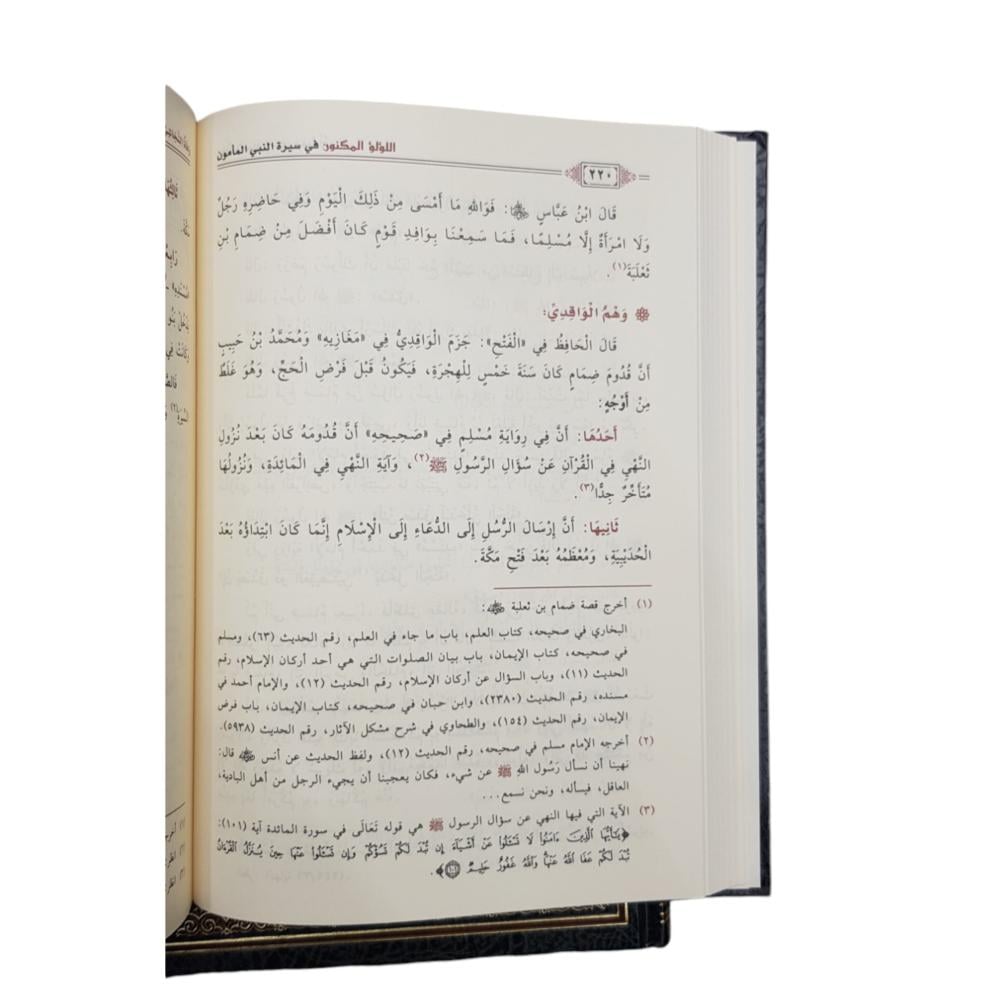 اللؤلؤ المكنون في سيرة النبي المأمون
٢٢٠
قَالَ ابْنُ عَبَّاسٍ رضي الله عنهما: فَوَاللهِ مَا أَمْسَى مِنْ ذَلِكَ الْيَوْمِ وَفِي حَاضِرِهِ رَجُلٌ
وَلَا امْرَأَةٌ إِلَّا مُسْلِمًا، فَمَا سَمِعْنَا بِوَافِدِ قَوْمٍ كَانَ أَفْضَلَ مِنْ ضِمَامِ بْنِ
ثَعْلَبَةَ(١).
وَهْمُ الْوَاقِدِيِّ:
قَالَ الْحَافِظُ فِي «الْفَتْحِ»: جَزَمَ الْوَاقِدِيُّ فِي «مَغَازِيهِ» وَمُحَمَّدُ بْنُ حَبِيبٍ
أَنَّ قُدُومَ ضِمَامٍ كَانَ سَنَةَ خَمْسٍ لِلْهِجْرَةِ، فَيَكُونُ قَبْلَ فَرْضِ الْحَجِّ، وَهُوَ غَلَطٌ
مِنْ أَوْجُهٍ:
أَحَدُهَا: أَنَّ فِي رِوَايَةِ مُسْلِمٍ فِي «صَحِيحِهِ» أَنَّ قُدُومَهُ كَانَ بَعْدَ نُزُولِ
النَّهْيِ فِي الْقُرْآنِ عَنْ سُؤَالِ الرَّسُولِ ﷺ(٢)، وَآيَةُ النَّهْيِ فِي الْمَائِدَةِ، وَنُزُولُهَا
مُتَأَخِّرٌ جِدًّا(٣).
ثَانِيهَا: أَنَّ إِرْسَالَ الرُّسُلِ إِلَى الدُّعَاءِ إِلَى الْإِسْلَامِ إِنَّمَا كَانَ ابْتِدَاؤُهُ بَعْدَ
الْحُدَيْبِيَةِ، وَمُعْظَمُهُ بَعْدَ فَتْحِ مَكَّةَ.
(١) أخرج قصة ضمام بن ثعلبة رضي الله عنه:
البخاري في صحيحه، كتاب العلم، باب ما جاء في العلم، رقم الحديث (٦٣)، ومسلم
في صحيحه، كتاب الإيمان، باب بيان الصلوات التي هي أحد أركان الإسلام، رقم
الحديث (١١)، وباب السؤال عن أركان الإسلام، رقم الحديث (١٢)، والإمام أحمد في
مسنده، رقم الحديث (٢٣٨٠)، وابن حبان في صحيحه، كتاب الإيمان، باب فرض
الإيمان، رقم الحديث (١٥٤)، والطحاوي في شرح مشكل الآثار، رقم الحديث (٥٩٣٨).
(٢) أخرجه الإمام مسلم في صحيحه، رقم الحديث (١٢)، ولفظ الحديث عن أنس رضي الله عنه قال:
نهينا أن نسأل رَسُول اللهِ ﷺ عن شيء، فكان يعجبنا أن يجيء الرجل من أهل البادية،
العاقل، فيسأله، ونحن نسمع...
(٣) الآية التي فيها النهي عن سؤال الرسول ﷺ هي قوله تَعَالَى في سورة المائدة آية (١٠١):
﴿يَٰٓأَيُّهَا ٱلَّذِينَ ءَامَنُوا۟ لَا تَسْـَٔلُوا۟ عَنْ أَشْيَآءَ إِن تُبْدَ لَكُمْ تَسُؤْكُمْ وَإِن تَسْـَٔلُوا۟ عَنْهَا حِينَ يُنَزَّلُ ٱلْقُرْءَانُ
تُبْدَ لَكُمْ عَفَا ٱللَّهُ عَنْهَا وَٱللَّهُ غَفُورٌ حَلِيمٌ ١٠١﴾.